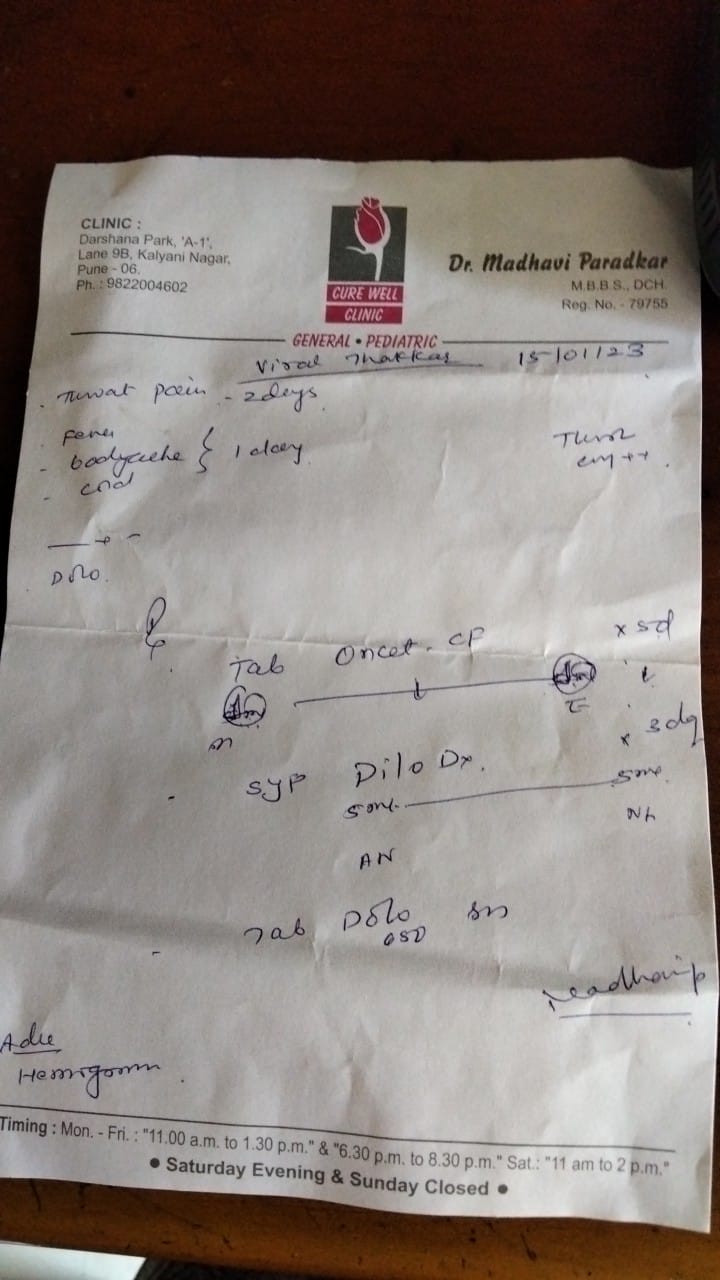 CLINIC :
Darshana Park, 'A-1',
Lane 9B, Kalyani Nagar,
Pune - 06.
Ph. : 9822004602
CURE WELL
CLINIC
Dr. Madhavi Paradkar
M.B.B.S., DCH.
Reg. No. - 79755
GENERAL • PEDIATRIC
Viral Thakkar 15/01/23
Throat pain - 2days
fever
- bodyache } 1 day
- cold
Throat
++
Dolo.
Tab Oncet-CF x 5d
x 3d
- Syp Dilo Dx.
5ml 5ml
AN
- Tab Dolo
650
Adv
Timing : Mon. - Fri. : "11.00 a.m. to 1.30 p.m." & "6.30 p.m. to 8.30 p.m." Sat.: "11 am to 2 p.m."
• Saturday Evening & Sunday Closed •